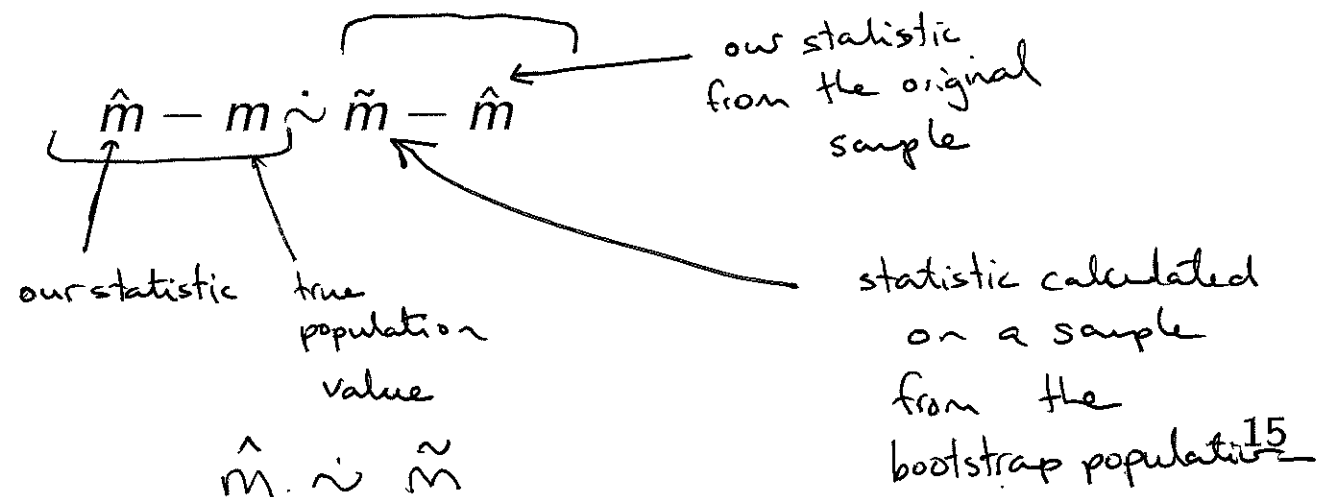 our statistic
from the original
sample
m̂ − m ∻ m̃ − m̂
our statistic
true
population
value
statistic calculated
on a sample
from the
bootstrap population
15
m̂ ∻ m̃